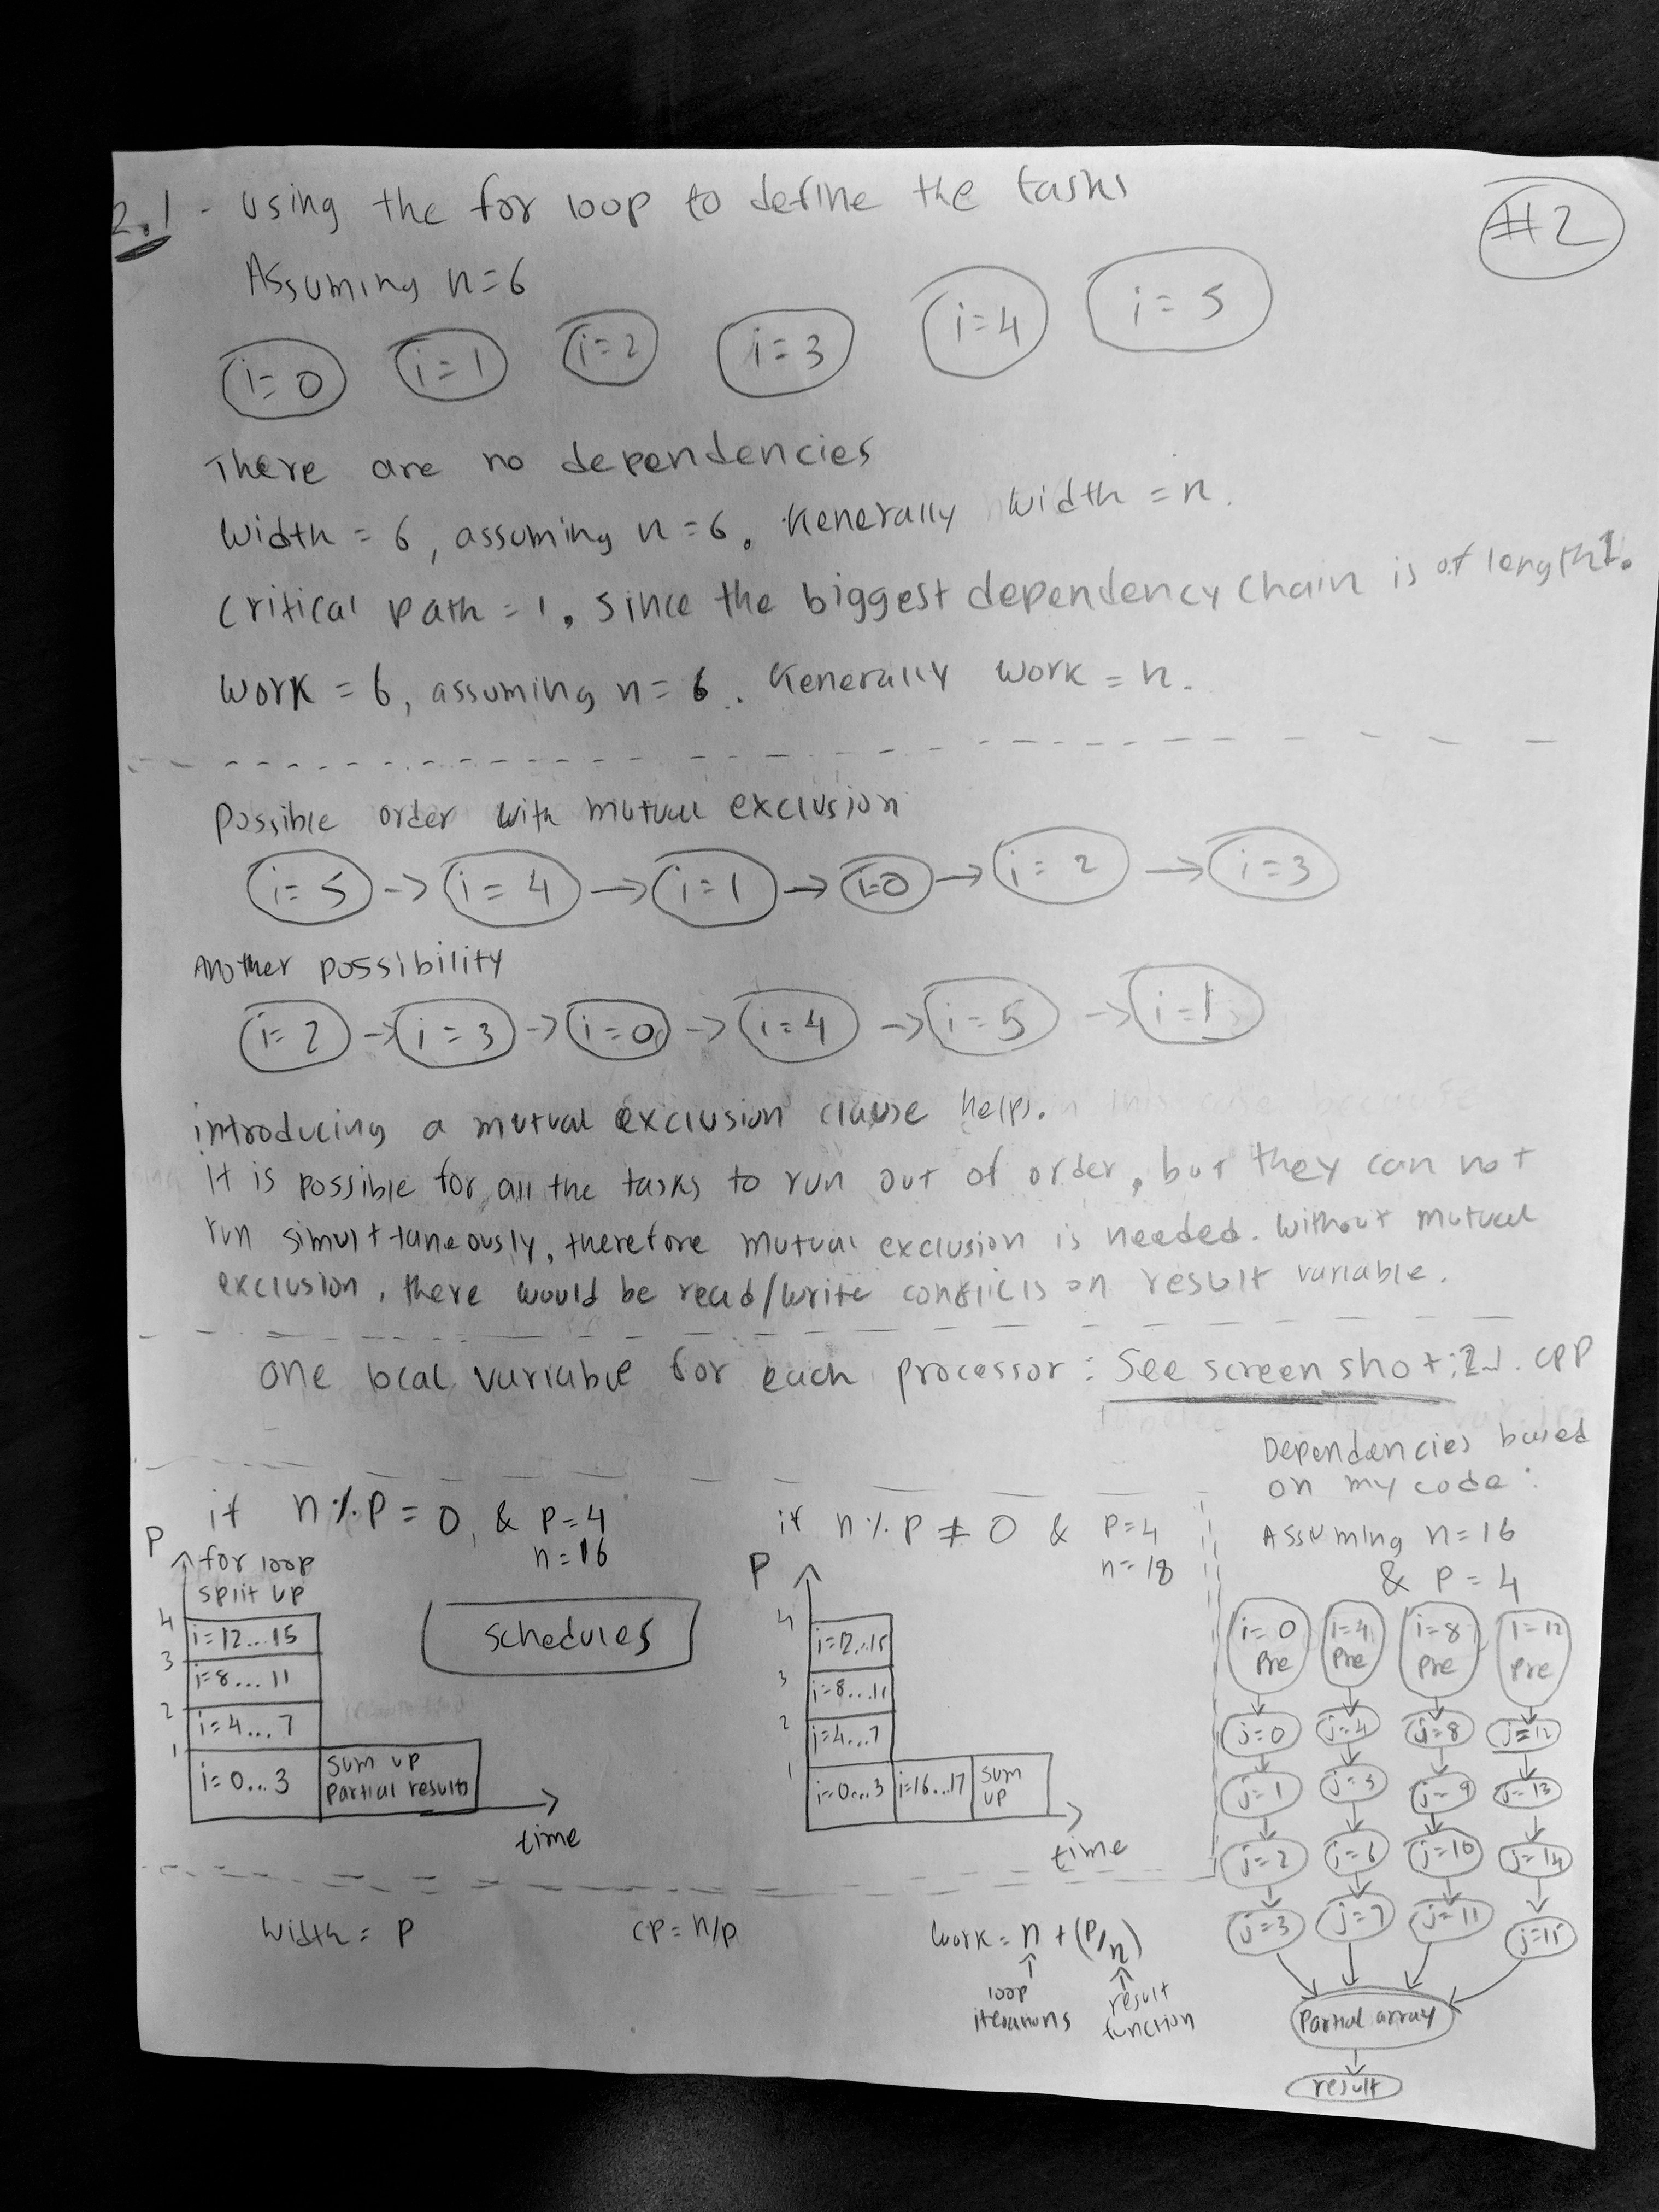 2.1 - using the for loop to define the tasks
#2
Assuming n=6
i=0 i=1 i=2 i=3 i=4 i=5
There are no dependencies
Width = 6, assuming n=6. Generally width = n.
critical path = 1, since the biggest dependency chain is of length 1.
Work = 6, assuming n=6. Generally work = n.
Possible order with mutual exclusion
i=5 -> i=4 -> i=1 -> i=0 -> i=2 -> i=3
Another possibility
i=2 -> i=3 -> i=0 -> i=4 -> i=5 -> i=1
introducing a mutual exclusion clause helps.
It is possible for all the tasks to run out of order, but they can not
run simulttaneously, therefore mutual exclusion is needed. Without mutual
exclusion, there would be read/write conflicts on result variable.
one local variable for each processor: See screenshot: .cpp
if n%P=0, & P=4
n=16
P
for loop
split up
4
i=12...15
3
i=8...11
2
i=4...7
1
i=0...3
sum up
Partial results
time
schedules
if n%P≠0 & P=4
n=18
P
4
i=12..15
3
i=8...11
2
i=4...7
1
i=0...3 i=16...17 sum
up
time
Dependencies based
on my code:
Assuming n=16
& P=4
i=0 i=4 i=8 i=12
Pre Pre Pre Pre
j=0 j=4 j=8 j=12
j=1 j=5 j=9 j=13
j=2 j=6 j=10 j=14
j=3 j=7 j=11 j=15
Partial array
result
Width = P
CP = n/P
Work = n + (P/n)
loop
iterations
result
function